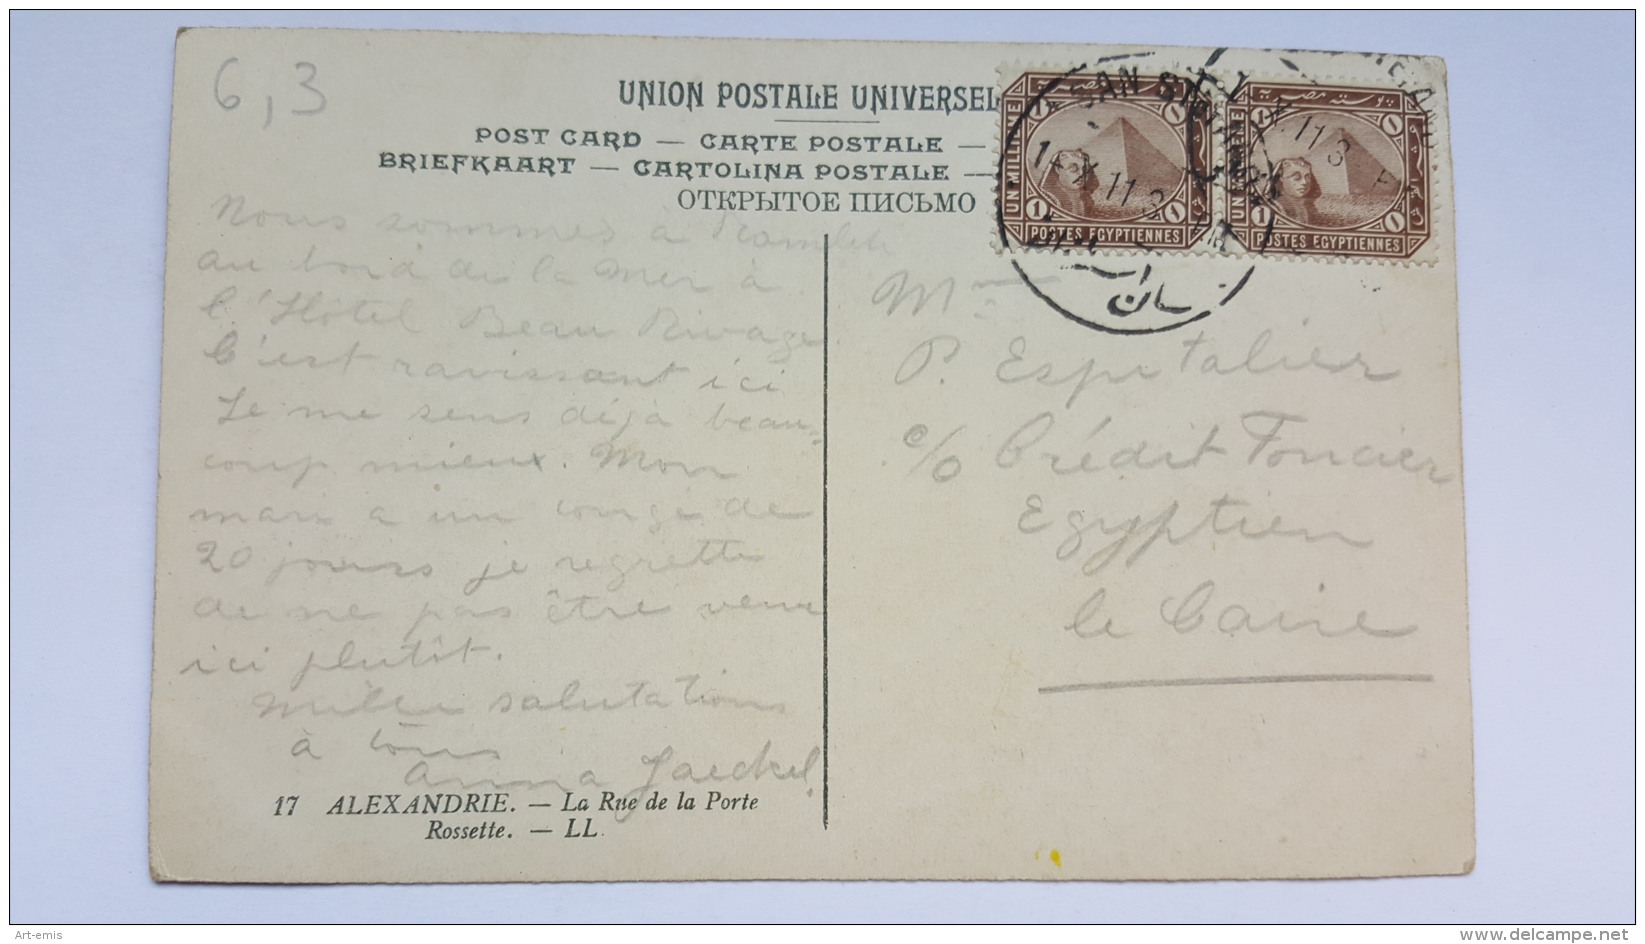 6,3
UNION POSTALE UNIVERSEL
POST CARD — CARTE POSTALE —
BRIEFKAART — CARTOLINA POSTALE —
ОТКРЫТОЕ ПИСЬМО
Nous sommes à Ramleh
au bord de la Mer à
l'Hôtel Beau Rivage.
C'est ravissant ici
Je me sens déjà beau=
coup mieux. Mon
mari a un congé de
20 jours je regrette
de ne pas être venu
ici plutôt.
Mille salutations
à tous
Anna Jaeckel
17 ALEXANDRIE. — La Rue de la Porte
Rossette. — LL.
UN MILLIEME
1
1
POSTES EGYPTIENNES
UN MILLIEME
1
1
POSTES EGYPTIENNES
بوسته مصريه
SAN STEFANO
14 X 11 3
X 11 3
سان
Mme
P. Espitalier
c/o Crédit Foncier
Egyptien
le Caire
Art-emis
delcampe.net